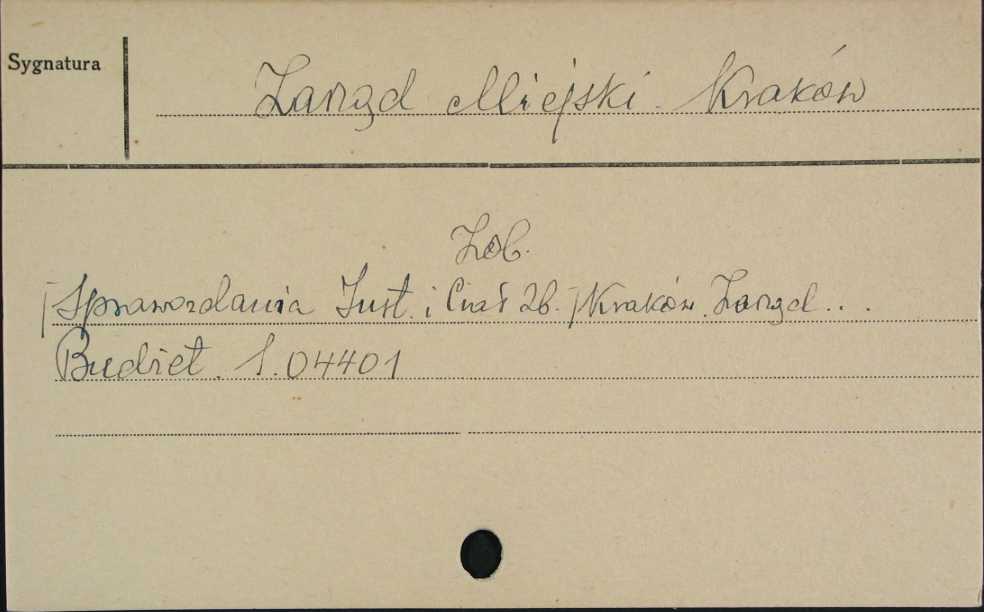 Sygnatura
Zarząd Miejski. Kraków
Zob.
[Sprawozdania Inst. i Ciał Zb.] Kraków. Zarząd...
Budżet. S. 04401